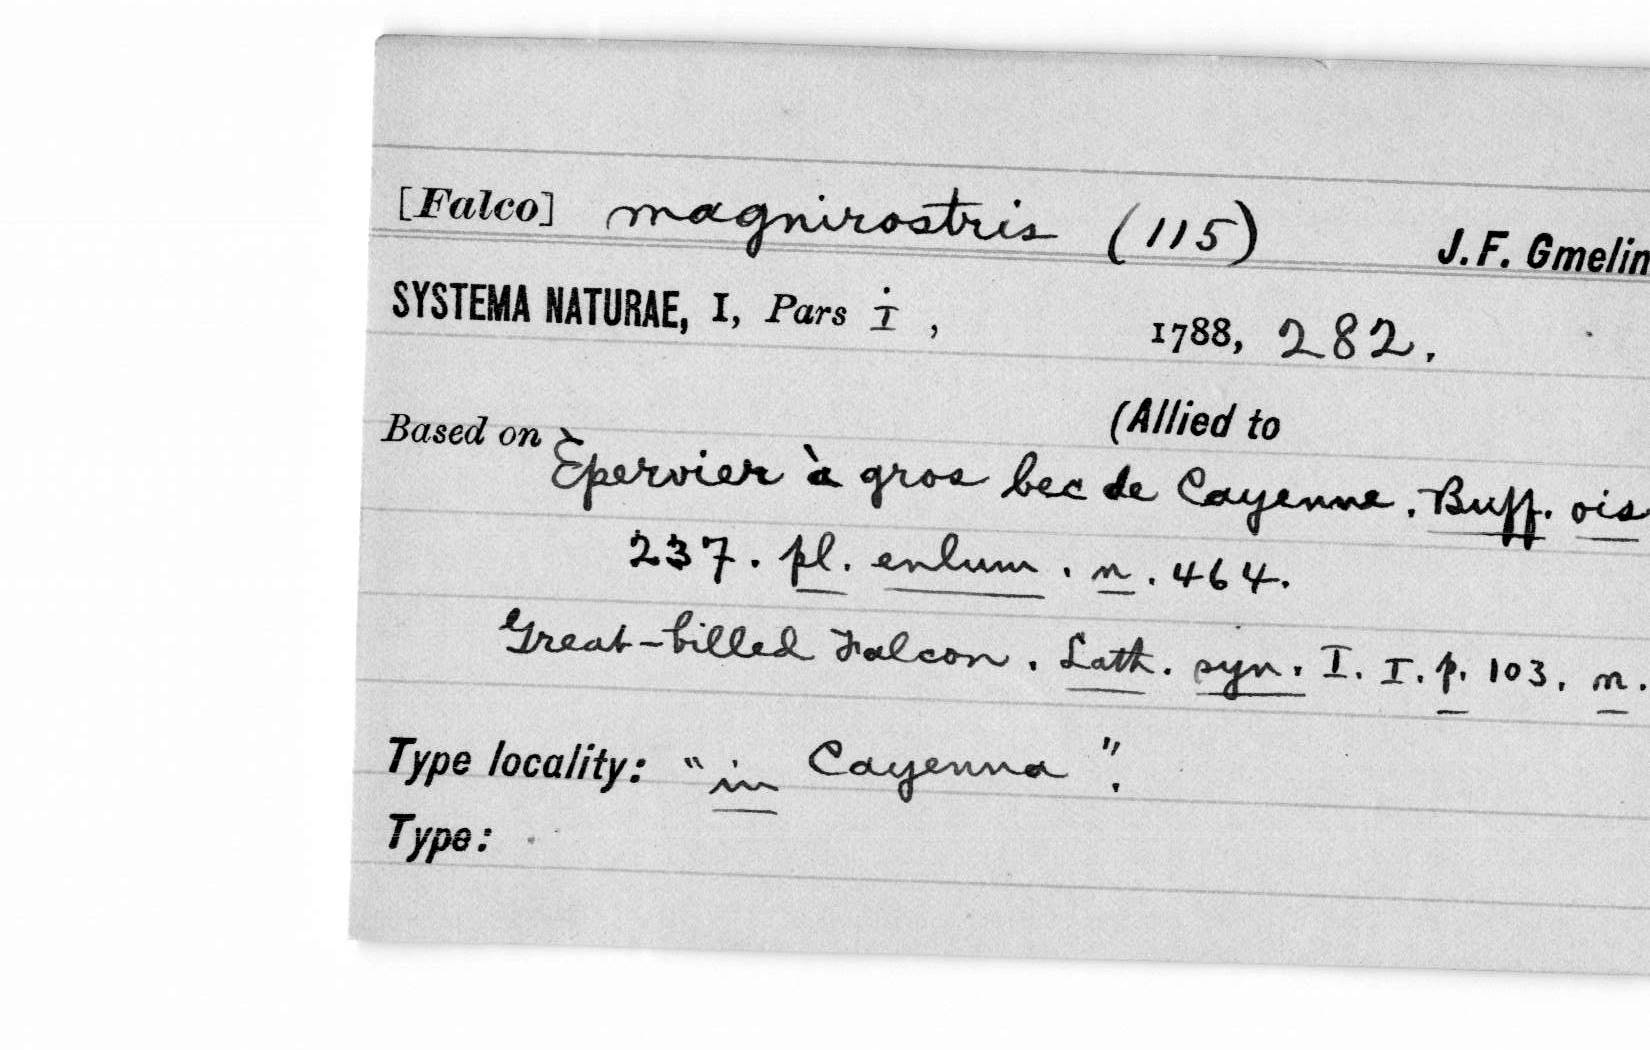 [Falco] magnirostris (115) J. F. Gmelin
SYSTEMA NATURAE, I, Pars i, 1788, 282.
(Allied to
Based on Èpervier à gros bec de Cayenne. Buff. ois
237. pl. enlum. n. 464.
Great-billed Falcon. Lath. syn. I. I. p. 103. n.
Type locality: "in Cayenna".
Type: